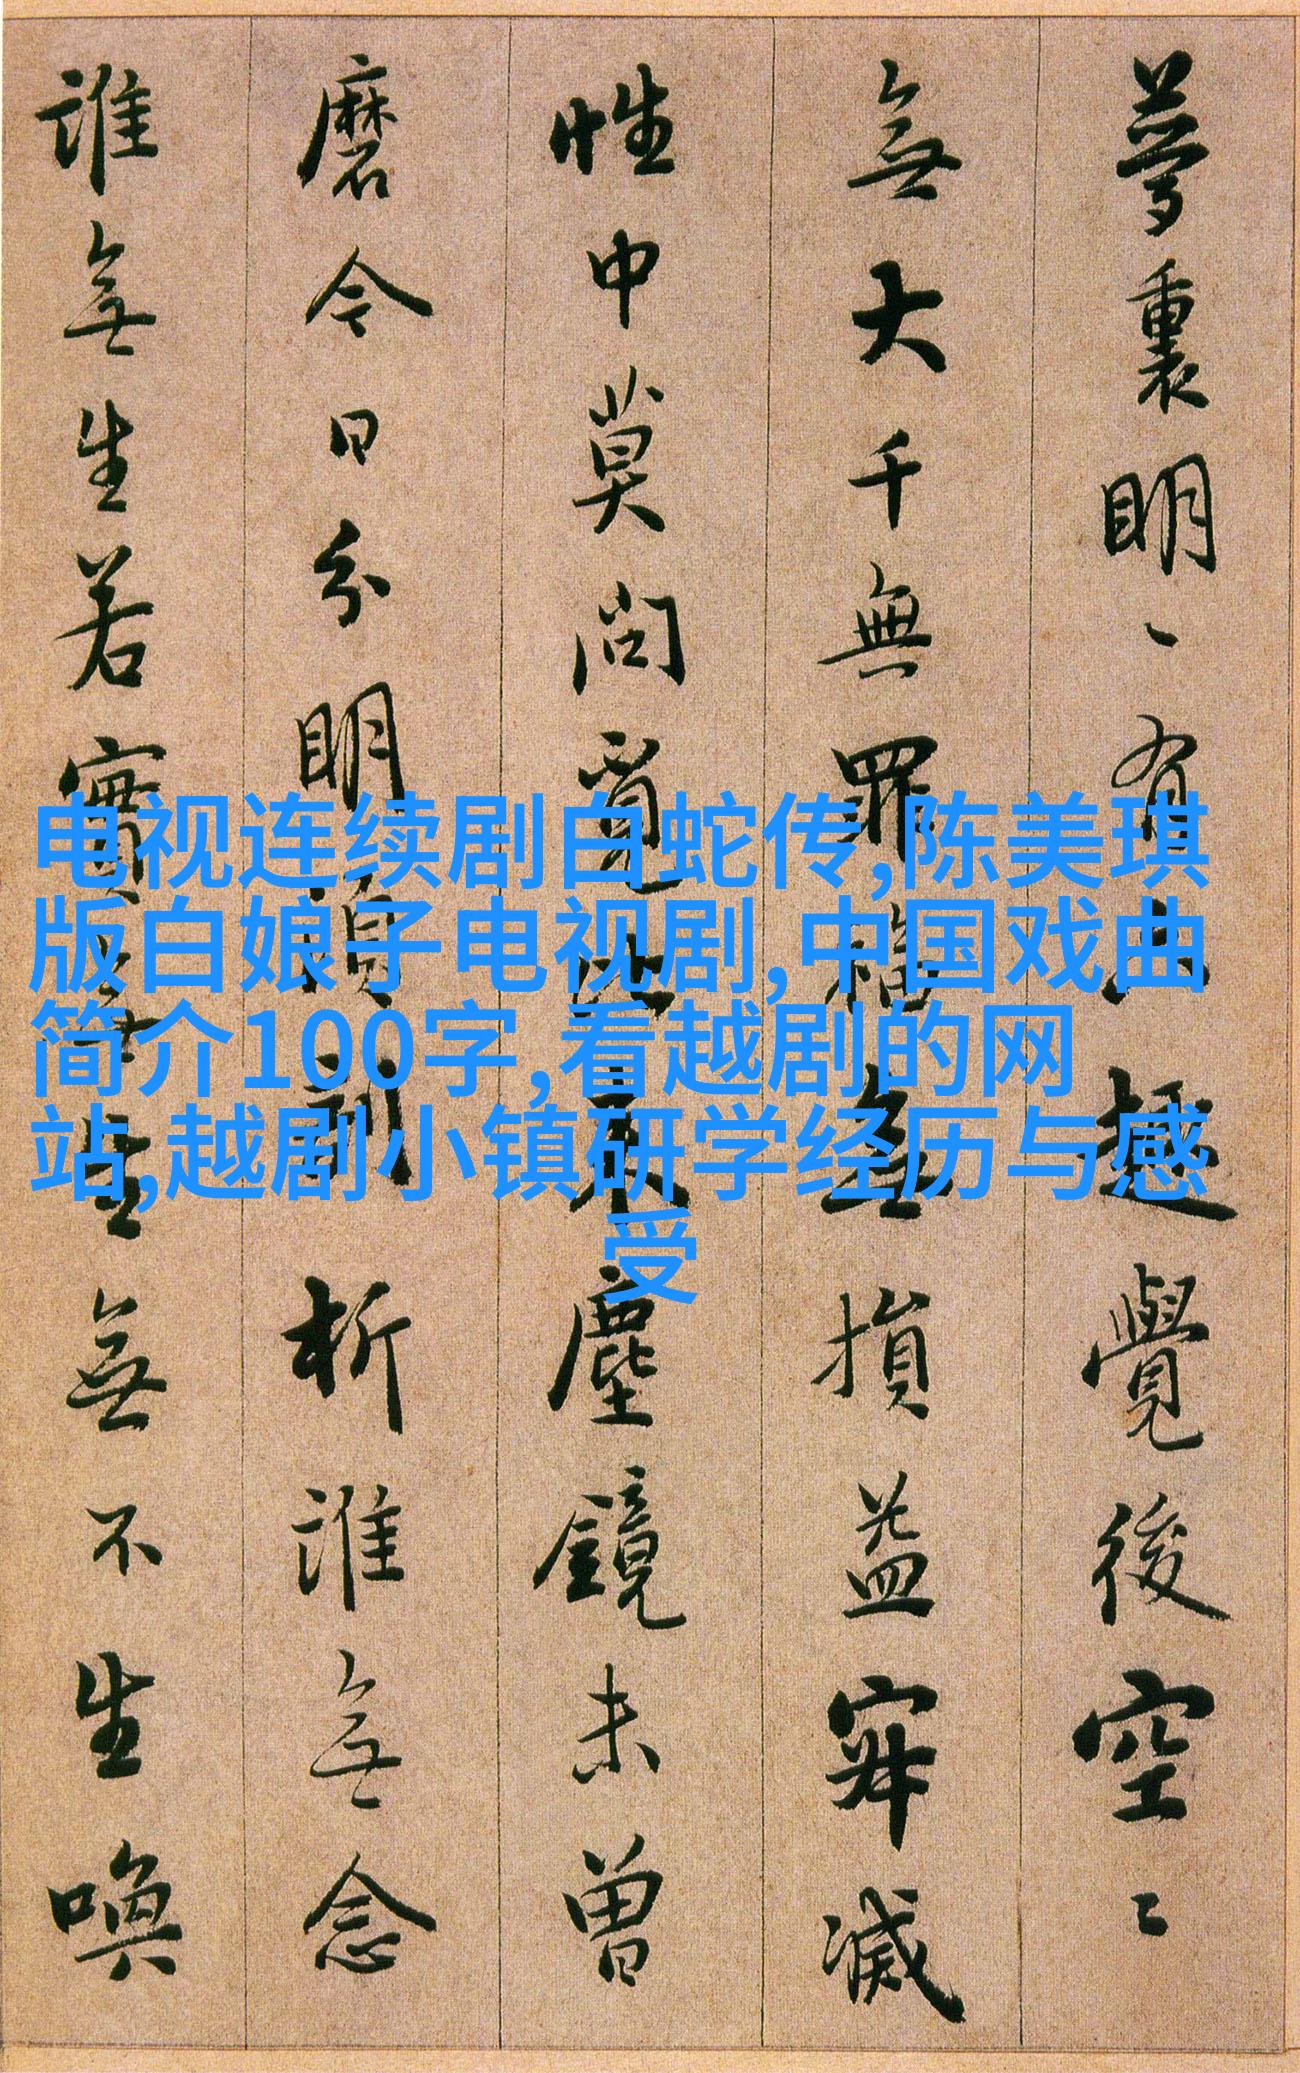 夢裏明〻有六趣覺後空〻
無大千無罪福無損益寂滅
性中莫問覓比来塵鏡未曽
磨今日分明須剖析誰無念
誰無生若實無生無不生喚
电视连续剧白蛇传,陈美琪
版白娘子电视剧,中国戏曲
简介100字,看越剧的网
站,越剧小镇研学经历与感
受